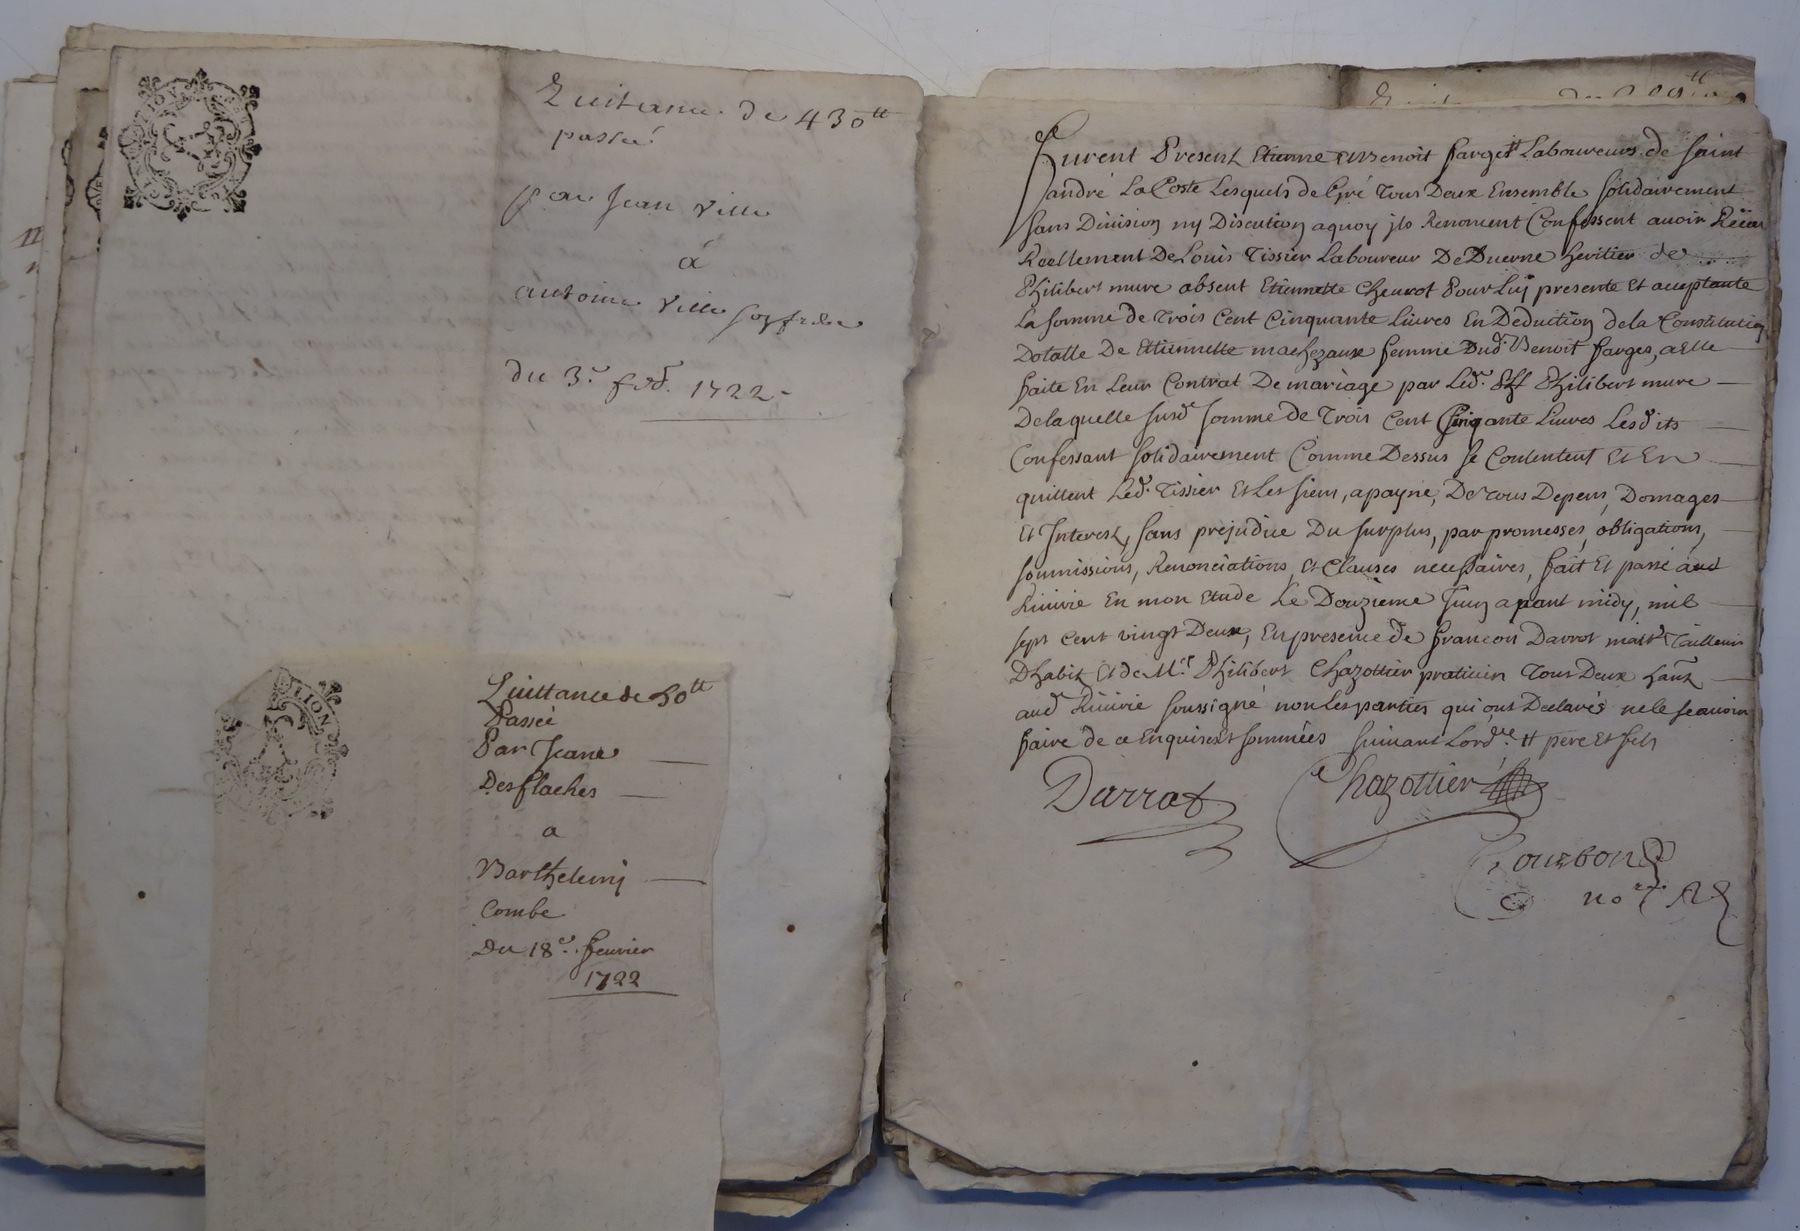 Quitance de 430tt
passée
par Jean Ville
a
antoine Ville
du 3e. 1722
Quittance de 50tt
Passée
Par Jeane
Desflaches
a
Barthelemj
Combe
Du 18e. feuvrier
1722
LION
Furent Present Etienne et Benoit fargett Laboureurs de saint
andré La Coste Lesquels de Gré Tous Deux Ensemble solidairement
sans Diuision ny Discution aquoy jls Renoncent Confessent auoir Reçeu
Reellement De Louis Tissier Laboureur De Duerne heritier de
Philibert mure absent Etiennette Cheurot Pour Luj presente Et aceptante
La somme de Trois Cent Cinquante Liures En Deduction dela Constitution
Dotalle De Etiennette machezaux femme Dud. Benoit farges, aElle
faite En Leur Contrat De mariage par Led. Philibert mure
Delaquelle susd somme de Trois Cent Cinqante Liures Lesdits
Confessant solidairement Comme Dessus se Contentent Et En
quittent Led. Tissier Et Les siens, apayne, De Tous Depens, Domages
Et Interest, sans prejudice Du surplus, par promesses, obligations,
soumissions, Renonciations, Et Clauses necessaires, fait Et passé aud
Riuirie En mon Etude Le Douzieme Juin auant midy, mil
sept cent vingt Deux, En presence de francois Darrot maitr Tailleur
Dhabit Et de Mr. Philibert Chazottier praticien Tous Deux hant
aud Riuirie soussigné non Les parties qui ont Declarés nele sçauoir
faire de ce Enquises Et sommées suiuant Lordce. tt pere Et fils
Darrot Chazottier
Bourbon
nore R